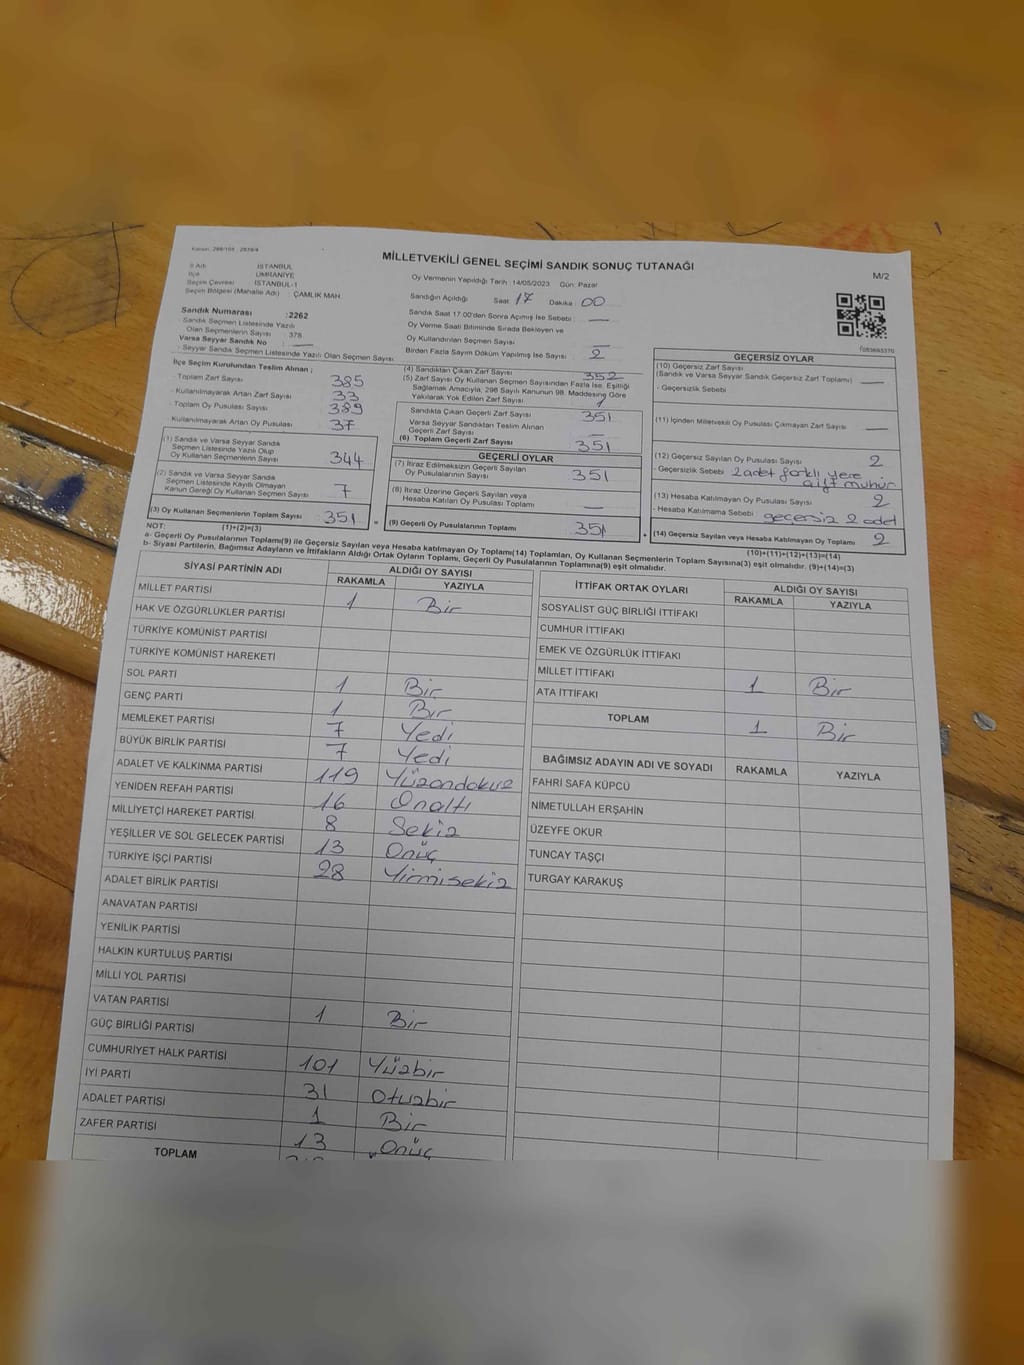 Kanun: 298/105 - 2839/4
MİLLETVEKİLİ GENEL SEÇİMİ SANDIK SONUÇ TUTANAĞI
M/2
İl Adı : İSTANBUL
İlçe : ÜMRANİYE
Seçim Çevresi : İSTANBUL-1
Seçim Bölgesi (Mahalle Adı) : ÇAMLIK MAH.
Oy Vermenin Yapıldığı Tarih :14/05/2023 Gün: Pazar
Sandığın Açıldığı Saat : 17 Dakika : 00
Sandık Saat 17.00'den Sonra Açılmış İse Sebebi : —
Oy Verme Saati Bitiminde Sırada Bekleyen ve
Oy Kullandırılan Seçmen Sayısı : —
Birden Fazla Sayım Döküm Yapılmış İse Sayısı : 2
Sandık Numarası : 2262
- Sandık Seçmen Listesinde Yazılı
Olan Seçmenlerin Sayısı : 378
Varsa Seyyar Sandık No : —
- Seyyar Sandık Seçmen Listesinde Yazılı Olan Seçmen Sayısı
İlçe Seçim Kurulundan Teslim Alınan ;
- Toplam Zarf Sayısı 385
- Kullanılmayarak Artan Zarf Sayısı 33
- Toplam Oy Pusulası Sayısı 389
- Kullanılmayarak Artan Oy Pusulası 37
(1) Sandık ve Varsa Seyyar Sandık
Seçmen Listesinde Yazılı Olup
Oy Kullanan Seçmenlerin Sayısı 344
(2) Sandık ve Varsa Seyyar Sandık
Seçmen Listesinde Kayıtlı Olmayan
Kanun Gereği Oy Kullanan Seçmen Sayısı 7
(3) Oy Kullanan Seçmenlerin Toplam Sayısı 351
(1)+(2)=(3)
(4) Sandıktan Çıkan Zarf Sayısı 352
(5) Zarf Sayısı Oy Kullanan Seçmen Sayısından Fazla İse, Eşitliği
Sağlamak Amacıyla, 298 Sayılı Kanunun 98. Maddesine Göre
Yakılarak Yok Edilen Zarf Sayısı 1
Sandıkta Çıkan Geçerli Zarf Sayısı 351
Varsa Seyyar Sandıktan Teslim Alınan
Geçerli Zarf Sayısı —
(6) Toplam Geçerli Zarf Sayısı 351
GEÇERLİ OYLAR
(7) İtiraz Edilmeksizin Geçerli Sayılan
Oy Pusulalarının Sayısı 351
(8) İtiraz Üzerine Geçerli Sayılan veya
Hesaba Katılan Oy Pusulası Toplamı —
= (9) Geçerli Oy Pusulalarının Toplamı 351
GEÇERSİZ OYLAR
(10) Geçersiz Zarf Sayısı
(Sandık ve Varsa Seyyar Sandık Geçersiz Zarf Toplamı) —
- Geçersizlik Sebebi
(11) İçinden Milletvekili Oy Pusulası Çıkmayan Zarf Sayısı —
(12) Geçersiz Sayılan Oy Pusulası Sayısı 2
- Geçersizlik Sebebi 2 adet farklı yere
ait mühür
(13) Hesaba Katılmayan Oy Pusulası Sayısı 2
- Hesaba Katılmama Sebebi geçersiz 2 adet
+ (14) Geçersiz Sayılan veya Hesaba Katılmayan Oy Toplamı 2
(10)+(11)+(12)+(13)=(14)
NOT:
a- Geçerli Oy Pusulalarının Toplamı(9) ile Geçersiz Sayılan veya Hesaba katılmayan Oy Toplamı(14) Toplamları, Oy Kullanan Seçmenlerin Toplam Sayısına(3) eşit olmalıdır. (9)+(14)=(3)
b- Siyasi Partilerin, Bağımsız Adayların ve İttifakların Aldığı Ortak Oyların Toplamı, Geçerli Oy Pusulalarının Toplamına(9) eşit olmalıdır.
SİYASİ PARTİNİN ADI ALDIĞI OY SAYISI
RAKAMLA YAZIYLA
MİLLET PARTİSİ 1 Bir
HAK VE ÖZGÜRLÜKLER PARTİSİ
TÜRKİYE KOMÜNİST PARTİSİ
TÜRKİYE KOMÜNİST HAREKETİ
SOL PARTİ 1 Bir
GENÇ PARTİ 1 Bir
MEMLEKET PARTİSİ 7 Yedi
BÜYÜK BİRLİK PARTİSİ 7 Yedi
ADALET VE KALKINMA PARTİSİ 119 Yüzondokuz
YENİDEN REFAH PARTİSİ 16 Onaltı
MİLLİYETÇİ HAREKET PARTİSİ 8 Sekiz
YEŞİLLER VE SOL GELECEK PARTİSİ 13 Onüç
TÜRKİYE İŞÇİ PARTİSİ 28 Yirmisekiz
ADALET BİRLİK PARTİSİ
ANAVATAN PARTİSİ
YENİLİK PARTİSİ
HALKIN KURTULUŞ PARTİSİ
MİLLİ YOL PARTİSİ
VATAN PARTİSİ 1 Bir
GÜÇ BİRLİĞİ PARTİSİ
CUMHURİYET HALK PARTİSİ 101 Yüzbir
İYİ PARTİ 31 Otuzbir
ADALET PARTİSİ 1 Bir
ZAFER PARTİSİ 13 Onüç
TOPLAM
İTTİFAK ORTAK OYLARI ALDIĞI OY SAYISI
RAKAMLA YAZIYLA
SOSYALİST GÜÇ BİRLİĞİ İTTİFAKI
CUMHUR İTTİFAKI
EMEK VE ÖZGÜRLÜK İTTİFAKI
MİLLET İTTİFAKI 1 Bir
ATA İTTİFAKI
TOPLAM 1 Bir
BAĞIMSIZ ADAYIN ADI VE SOYADI RAKAMLA YAZIYLA
FAHRİ SAFA KÜPCÜ
NİMETULLAH ERŞAHİN
ÜZEYFE OKUR
TUNCAY TAŞÇI
TURGAY KARAKUŞ